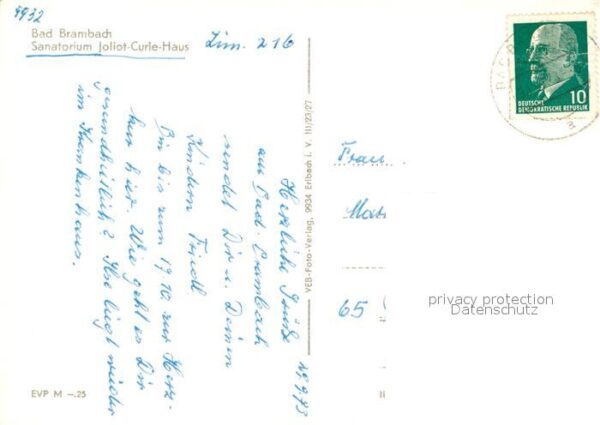 9932
Bad Brambach
Sanatorium Joliot-Curie-Haus
Zim. 216
29.9.73
Herzliche Grüße
aus Bad. Brambach
sendet Dir u. Deinen
Kindern Friedl.
Bin bis zum 17.10. zur Herz-
kur hier. Wie geht es Dir
gesundheitlich? Ilse liegt wieder
im Krankenhaus.
EVP M –.25
VEB-Foto-Verlag, 9934 Erlbach i. V. III/23/27
10
DEUTSCHE
DEMOKRATISCHE REPUBLIK
BAD
a
Frau
65
privacy protection
Datenschutz